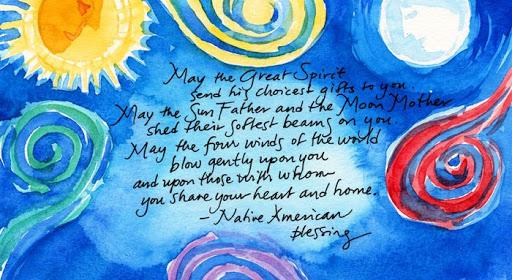 May the Great Spirit
send his choicest gifts to you.
May the Sun Father and the Moon Mother
shed their softest beams on you.
May the four winds of the world
blow gently upon you
and upon those with whom
you share your heart and home.
- Native American
blessing